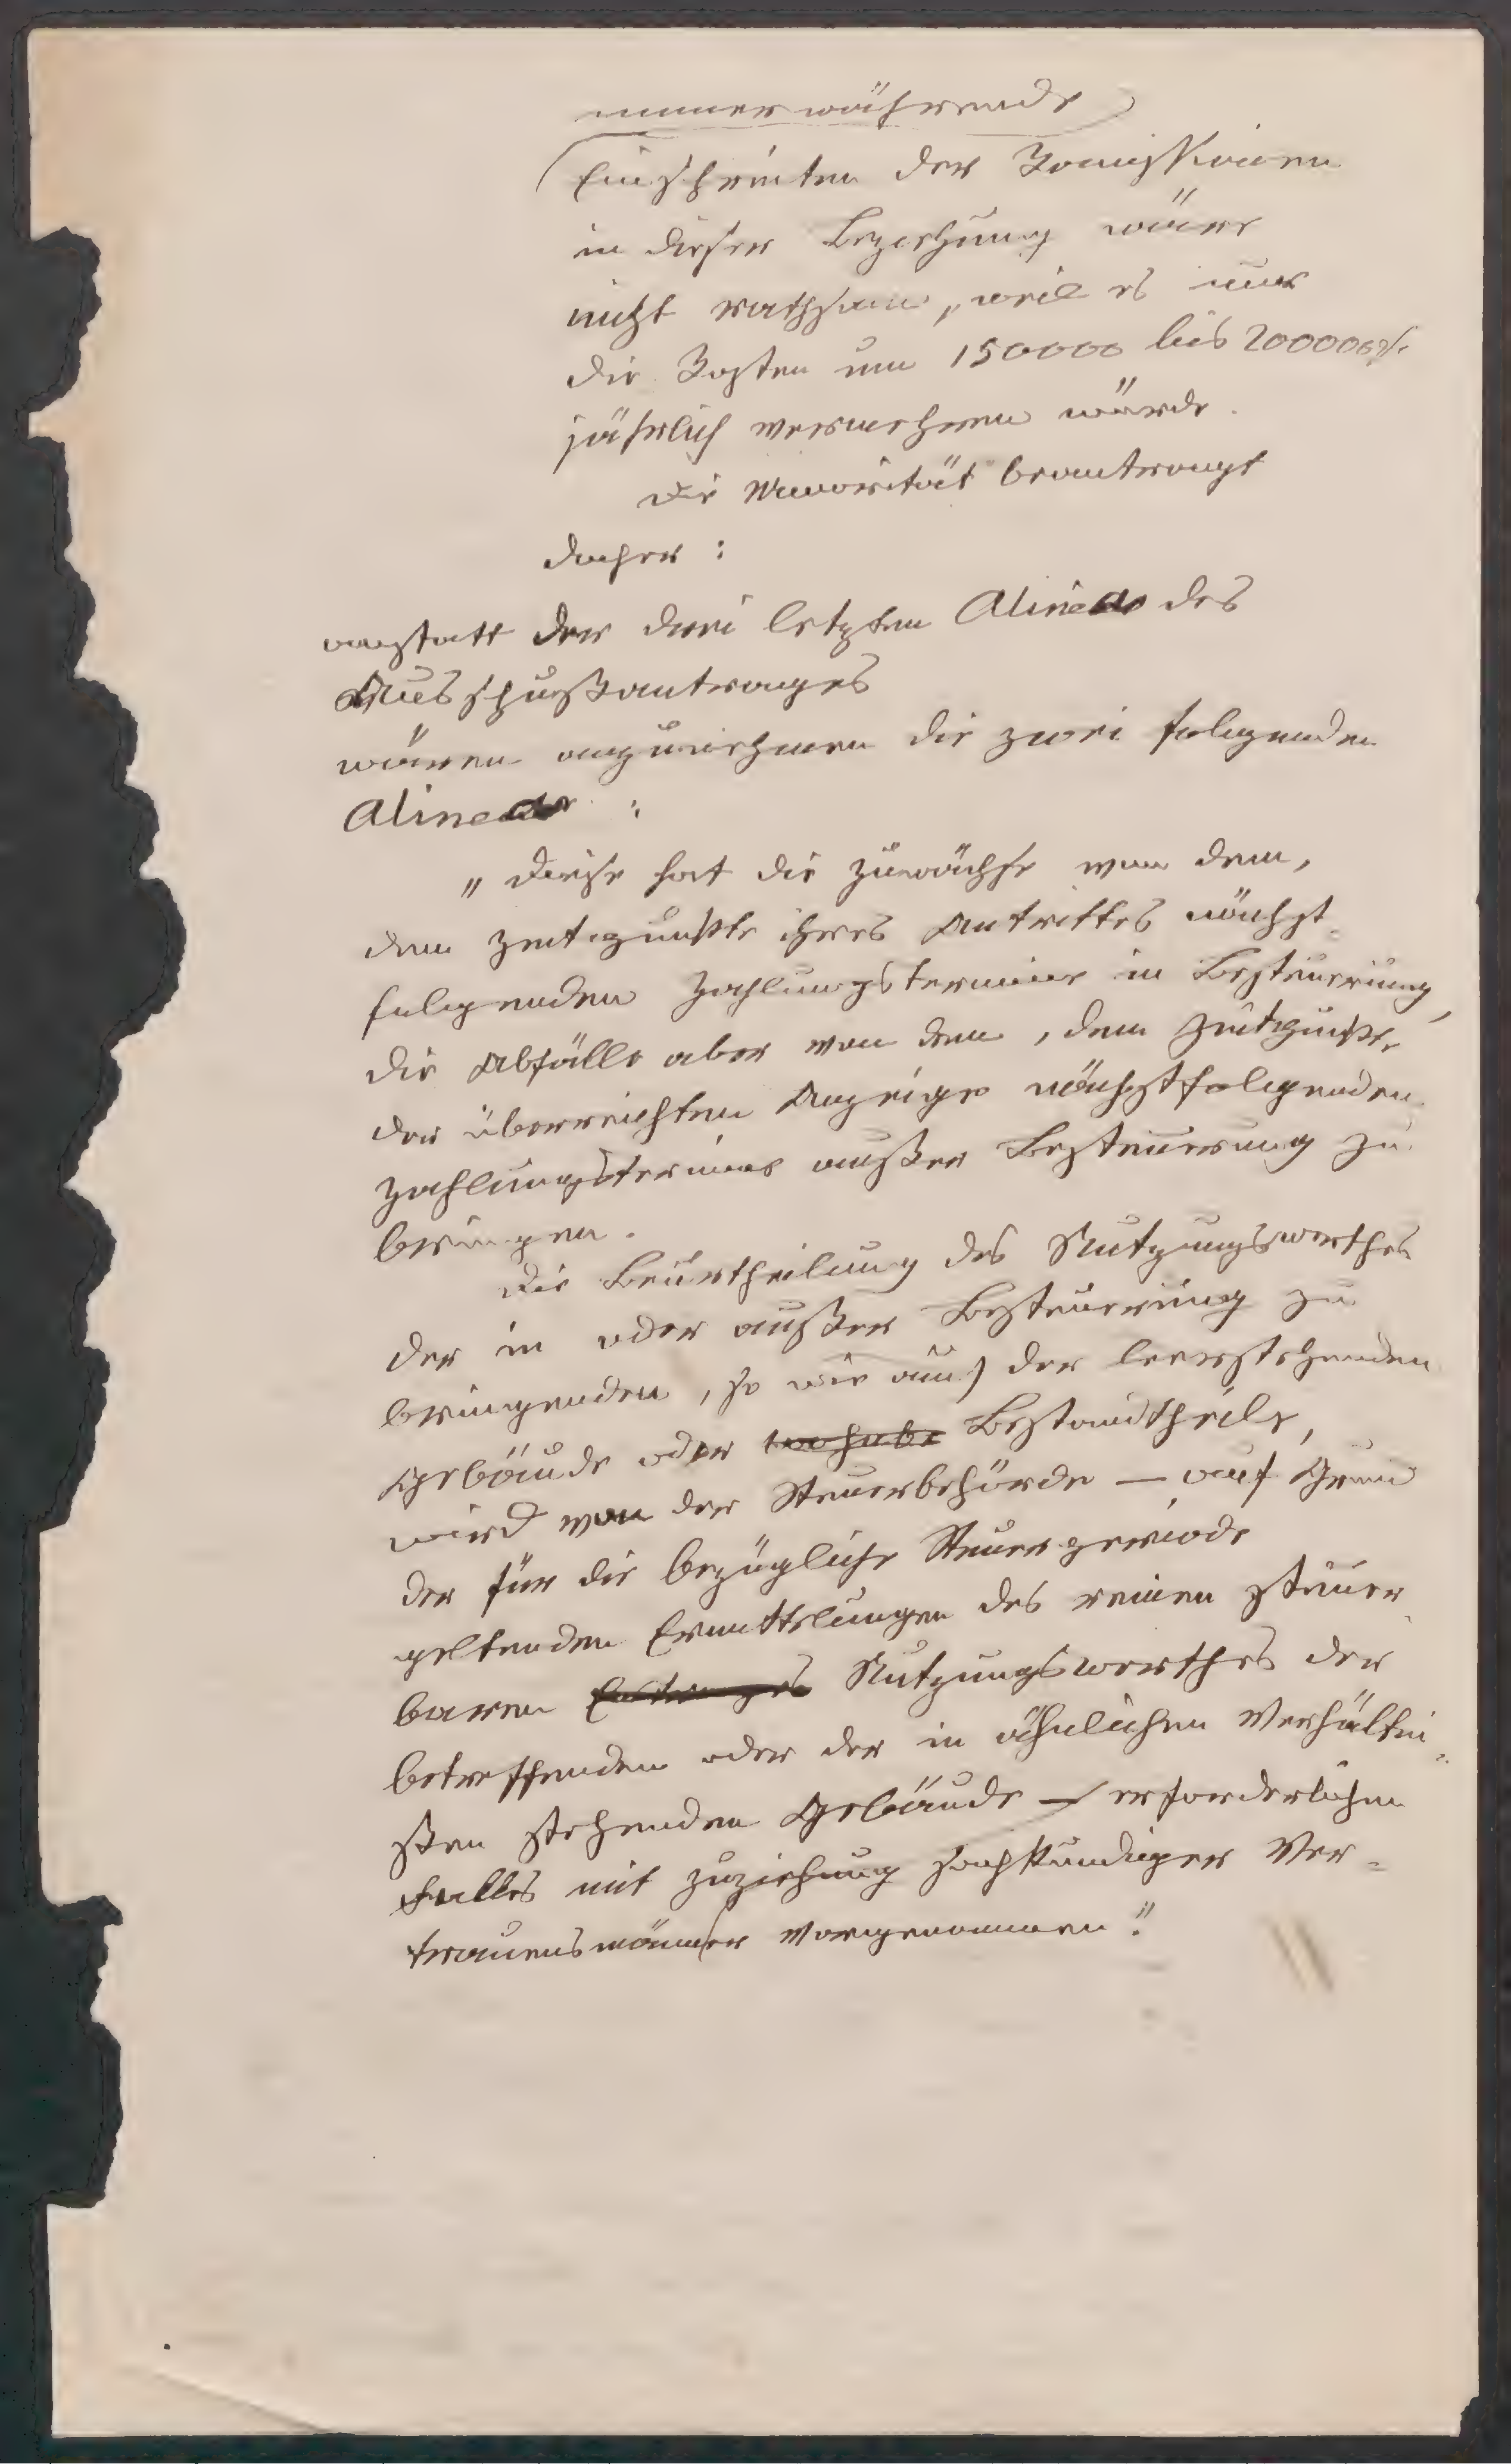 immerwährende
Einschreiten der Kommissionen
in dieser Beziehung wäre
nicht rathsam, weil es nur
die Kosten um 150000 bis 200000 fl.
jährlich vermehren würde.
Die Minorität beantragt
daher:
anstatt der drei letzten Alinea des
Ausschußantrages
wären anzunehmen die zwei folgenden
Alinea:
„Diese hat die Zuwächse von dem,
dem Zeitpunkte ihres Antrittes nächst-
folgenden Zahlungstermine in Besteuerung,
die Abfälle aber von dem, dem Zeitpunkte
der überreichten Anzeige nächstfolgenden
Zahlungstermine außer Besteuerung zu
bringen.
Die Beurtheilung des Nutzungswerthes
der in oder außer Besteuerung zu
bringenden, so wie auch der leerstehenden
Gebäude oder Bestandtheile,
wird von der Steuerbehörde — auf Grund
der für die bezügliche Steuerperiode
geltenden Ermittelungen des reinen steuer-
baren Nutzungswerthes der
betreffenden oder der in ähnlichen Verhältni-
ßen stehenden Gebäude — erforderlichen
Falles mit Zuziehung sachkundiger Ver-
trauensmänner vorgenommen."